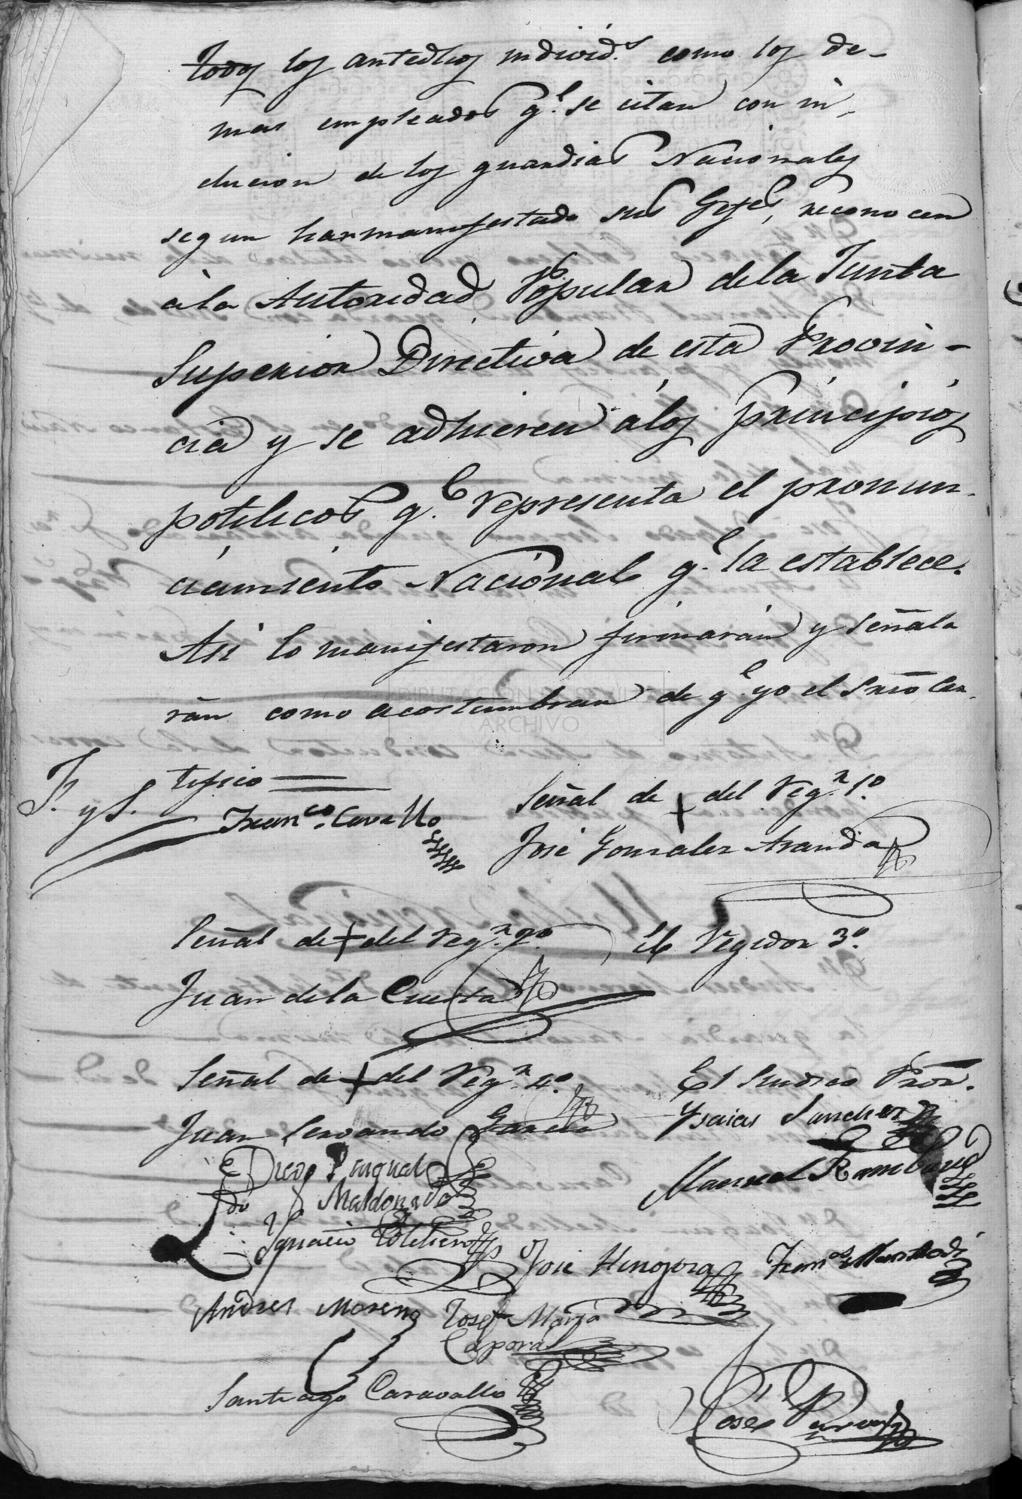 Todos los antedhos individ.s como los de-
mas empleados q.e se citan con in-
clucion de los guardias Nacionales
segun han manifestado sus Gefes, reconocen
á la Autoridad Popular de la Junta
Superior Directiva de esta Provin-
cia y se adhieren á los principios
politicos q.e representa el pronun-
ciamiento Nacional q.e la establece.
Asi lo manifestaron firmarán y señala
rán como acostumbran de q.e yo el Srio cer-
tifico
F. y S.
Fran.co Cavallo
Señal de + del Reg.r 1.o
José Gonzalez Aranda
Señal de + del Reg.r 2.o
El Regidor 3.o
Juan de la Cuesta
Señal de + del Reg.r 4.o
El Sindico Pror.
Juan Servando Garcia
Ysaias Sanchez
Diego Pasqual
Maldonado
Manuel
Ygnacio
José Hinojosa
Fran.co
Andres Moreno
Josef Maria
Capora
Santiago Caravallo
Josef
DIPUTACIÓN
ARCHIVO